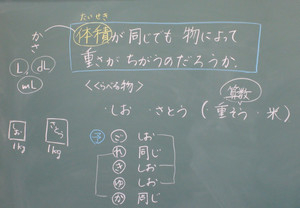 たいせき
体積が同じでも物によって
重さがちがうのだろうか。
かさ
L dL
mL
<くらべる物>
・しお ・さとう (重そう・米)
算数
しお
1kg
さとう
1kg
予
こう しお
れ 同じ
き しお
ゆ しお
か 同じ